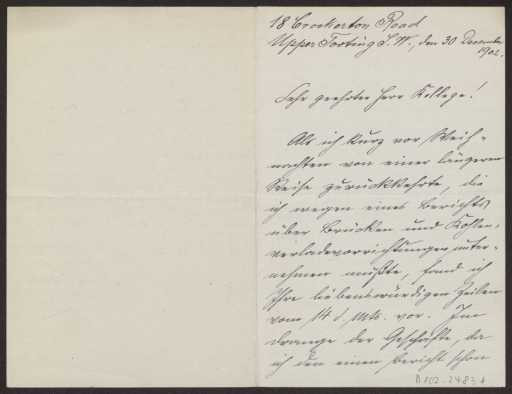 18 Brockerton Road
Upper Tooting S. W., den 30 Dezember
1902.
Sehr geehrter Herr Kollege!
Als ich kurz vor Weih-
nachten von einer längeren
Reise zurückkehrte, die
ich wegen eines Berichts
über Brücken und Kohlen-
verladevorrichtungen unter-
nehmen mußte, fand ich
Ihre liebenswürdigen Zeilen
vom 14 d. Mts. vor. Im
Drange der Geschäfte, da
ich den einen Bericht schon